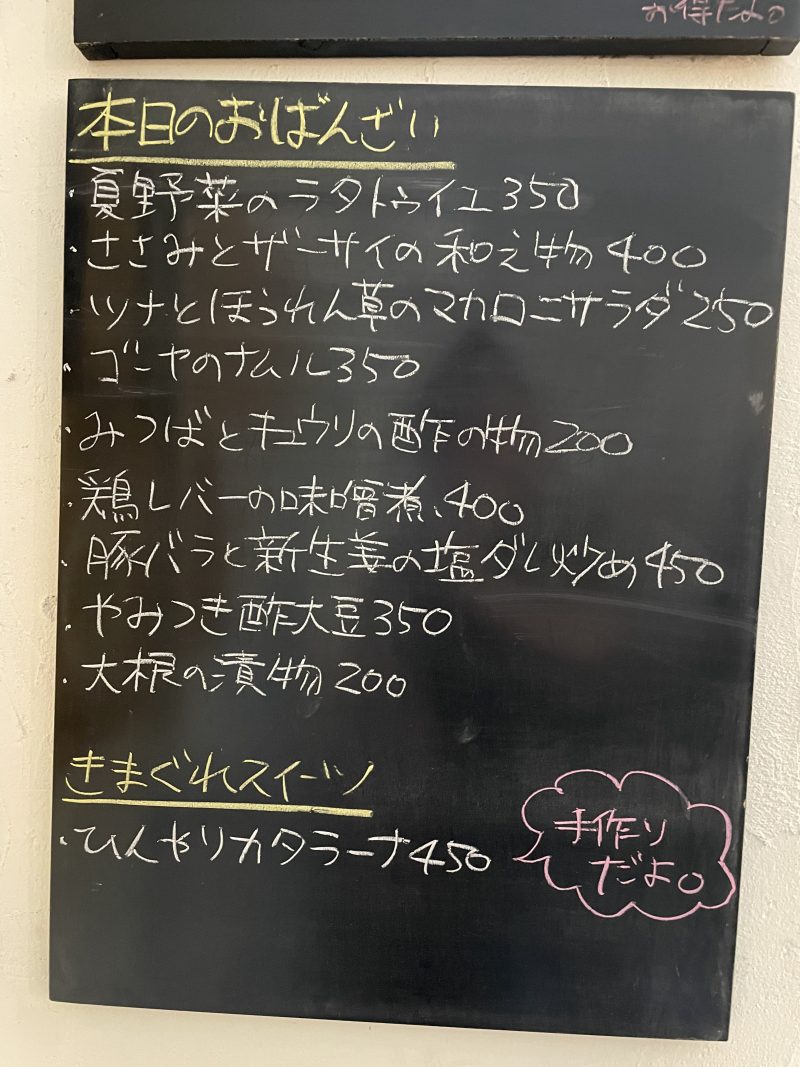 お得だよ。
本日のおばんざい
・夏野菜のラタトゥイユ350
・ささみとザーサイの和え物400
・ツナとほうれん草のマカロニサラダ250
・ゴーヤのナムル350
・みつばとキュウリの酢の物200
・鶏レバーの味噌煮、400
・豚バラと新生姜の塩ダレ炒め450
・やみつき酢大豆350
・大根の漬物200
きまぐれスイーツ
・ひんやりカタラーナ450
手作り
だよ。